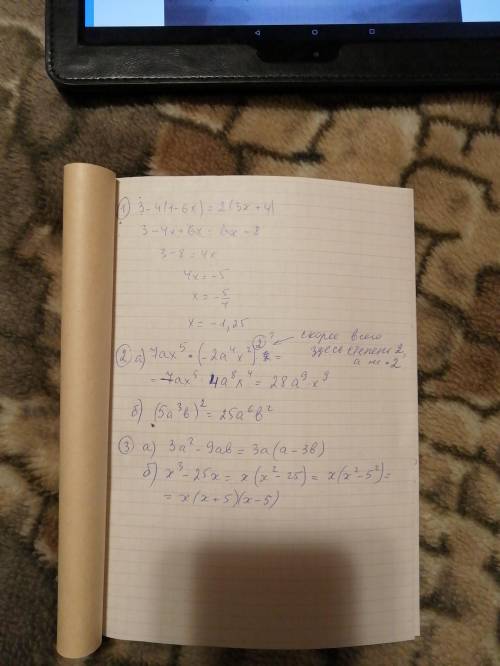 1) 3-4(1-6x)=2(3x+4)
3-4x+6x=6x-8
3-8=4x
4x=-5
x=-5/4
x=-1,25
2) а) 7ax⁵·(-2a⁴x²)² = ← скорее всего
здесь степень 2,
а не ·2
= 7ax⁵·4a⁸x⁴=28a⁹x⁹
б) (5a³b)²=25a⁶b²
3) а) 3a²-9ab=3a(a-3b)
б) x³-25x=x(x²-25)=x(x²-5²)=
=x(x+5)(x-5)